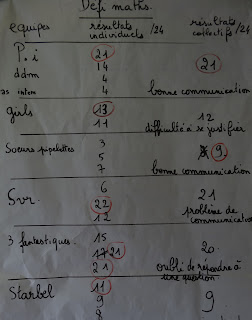 Defi maths.
équipes résultats individuels /24 résultats collectifs /24
P.i 21 21
ddm 14
4
as intem 4 bonne communication
girls 13 12
11 difficulté à se justifier
Soeurs pipelettes 3
5 9
7 bonne communication
6
Svr 22 21
12 problème de communication
3 fantastiques 15 20
17 21
21 oublié de répondre à une question
Starbel 11 9
9
8